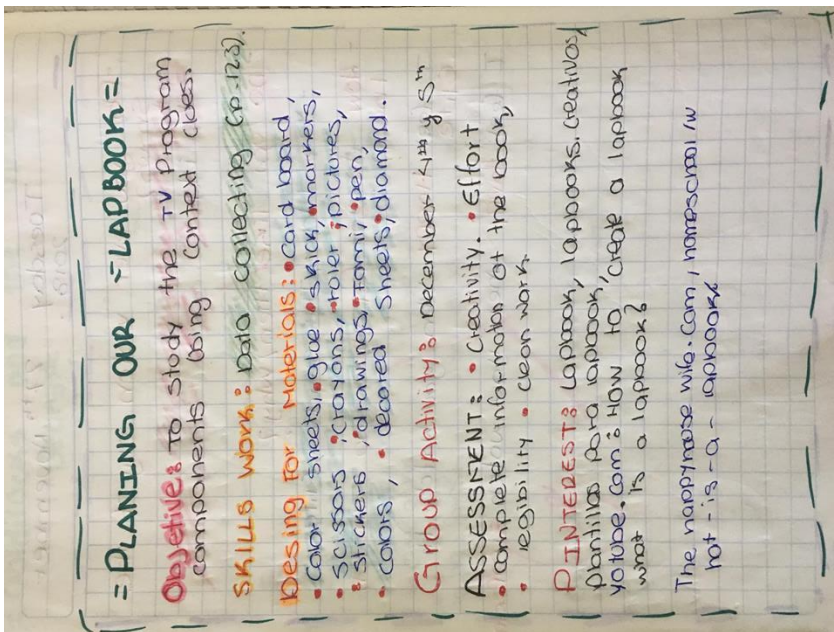 = PLANING OUR =LAPBOOK=
Objetive: To study the TV Program
components using context clues.
SKILLS WORK: Data collecting (p.123).
Desing For Materials: • Card board,
• Color sheets, • glue • stick, • markers,
• Scissors • crayons, • ruler • pictures,
• stickers • drawings, • fomi, • pen,
• colors, • decored sheets, diamond.
Group Activity: December 4th y 5th
ASSESSMENT: • creativity. • Effort
• complete information of the book,
• legibility • clean work.
PINTEREST: Lapbook, lapbooks creativos,
plantillas para lapbook,
yotube.com: How to create a lapbook
what is a lapbook?
The happymose wife.com, homeschool/w
hat-is-a-lapbook